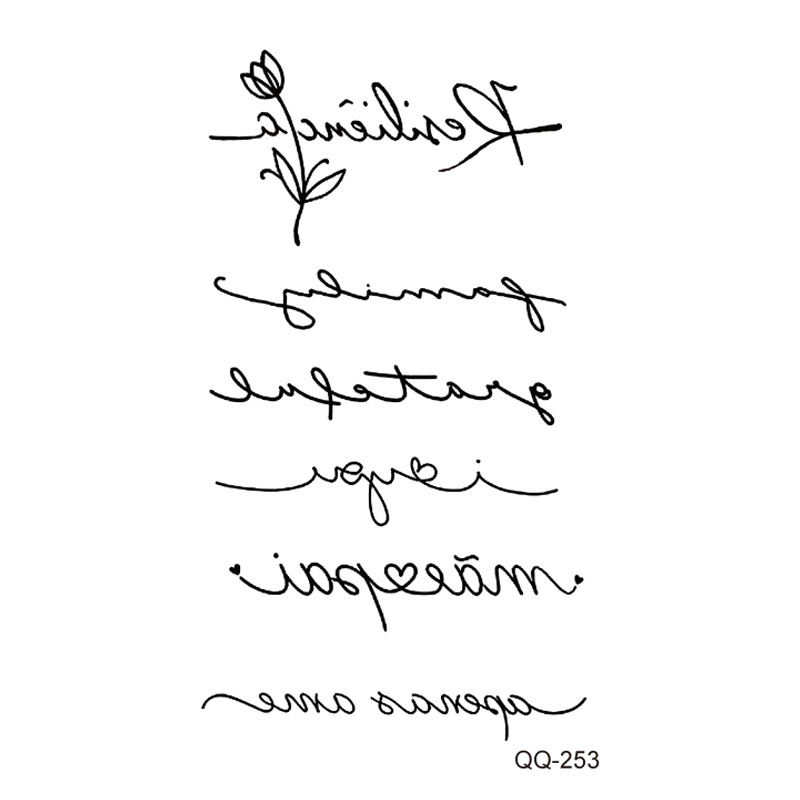 Resiliência
family
grateful
i ♡ you
mãe♡pai
apenas ame
QQ-253